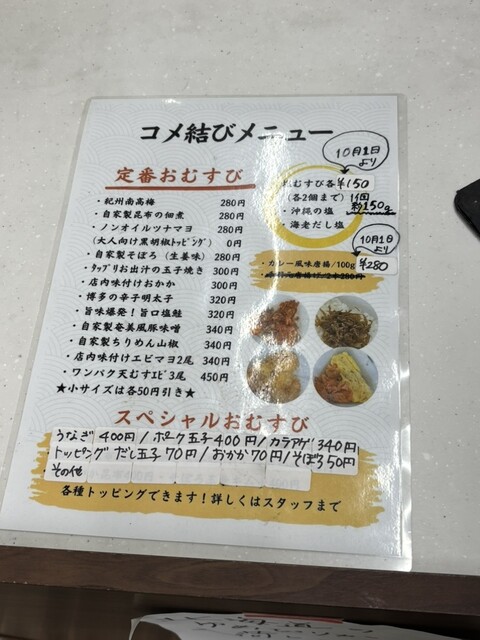 コメ結びメニュー
定番おむすび
・紀州南高梅 280円
・自家製昆布の佃煮 280円
・ノンオイルツナマヨ 280円
(大人向け黒胡椒トッピング) 0円
・自家製そぼろ(生姜味) 280円
・タップリお出汁の玉子焼き 300円
・店内味付けおかか 300円
・博多の辛子明太子 320円
・旨味爆発!旨口塩鮭 320円
・自家製奄美風豚味噌 340円
・自家製ちりめん山椒 340円
・店内味付けエビマヨ2尾 340円
・ワンパク天むすエビ3尾 450円
★小サイズは各50円引き★
10月1日
より
むすび各¥150
(各2個まで) 1個
約150g
・沖縄の塩
・海老だし塩
10月1日
より
・カレー風味唐揚/100g ¥280
スペシャルおむすび
うなぎ 400円/ポーク玉子400円/カラアゲ340円
トッピング だし玉子70円/おかか70円/そぼろ50円
その他
各種トッピングできます!詳しくはスタッフまで